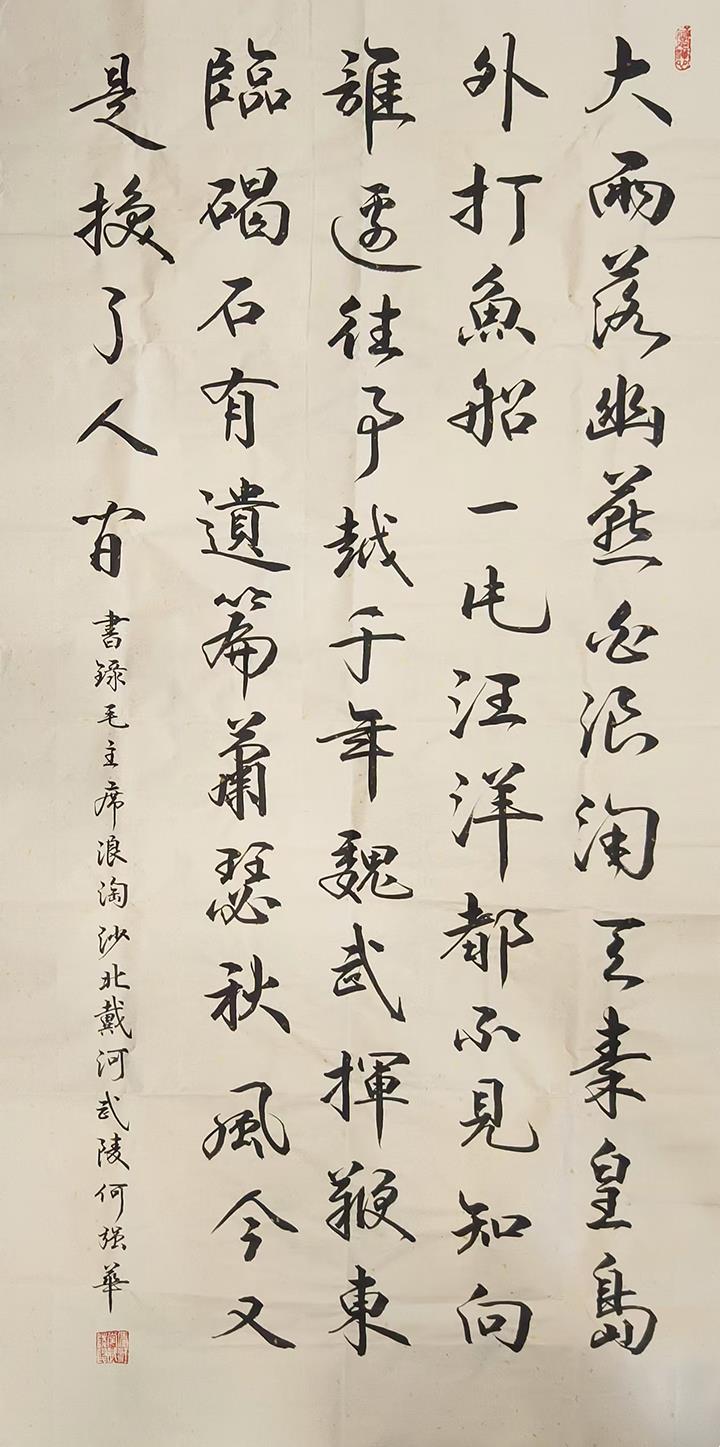 大雨落幽燕白浪淘天秦皇島
外打魚船一片汪洋都不見知向
誰邊往事越千年魏武揮鞭東
臨碣石有遺篇蕭瑟秋風今又
是換了人間
書錄毛主席浪淘沙北戴河武陵何强華